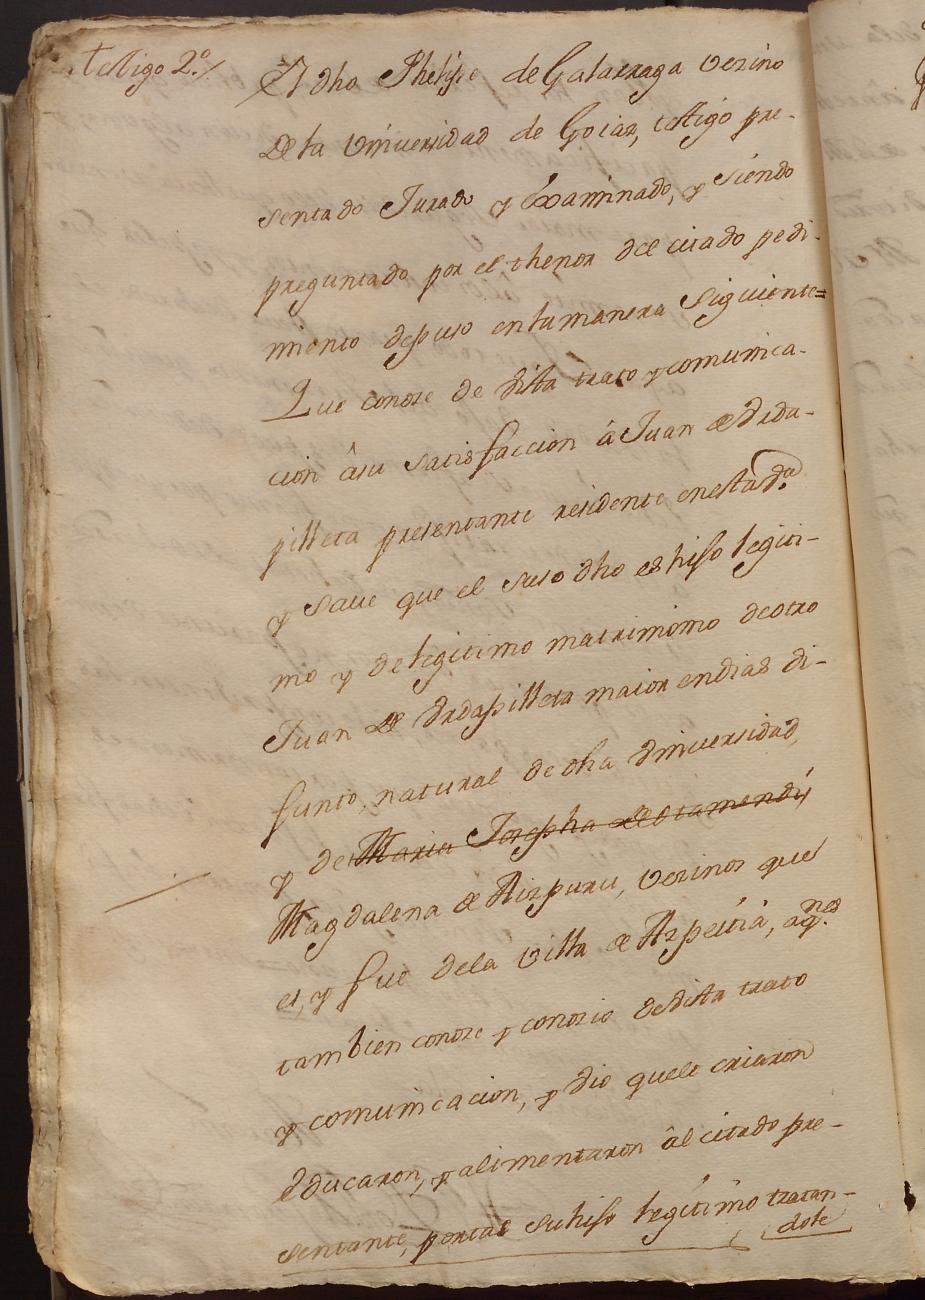 testigo 2.º/
El dho Phelipe de Galarraga vezino
de la Universidad de Goiaz, testigo pre-
sentado Jurado y Examinado, y siendo
preguntado por el thenor del citado pedi-
miento depuso enlamanera siguiente=
Que conoze de vista trato y comunica-
cion âsu satisfaccion â Juan de Vrda-
pilleta presentante residente enesta d.ha
y save que el suso dho es hijo legiti-
mo y de legitimo matrimonio deotro
Juan de Vrdapilleta maior endias di-
funto, natural de dha Vniversidad,
y de Maria Josepha de Otamendi y
Magdalena de Aizpuru, vezinos que
es, y fue dela villa de Azpeitia, aq.nes
tambien conoze y conozio de vista trato
y comunicacion, y vio quele criaron
educaron, y alimentaron âl citado pre-
sentante, portal su hijo legitimo tratan-
dole